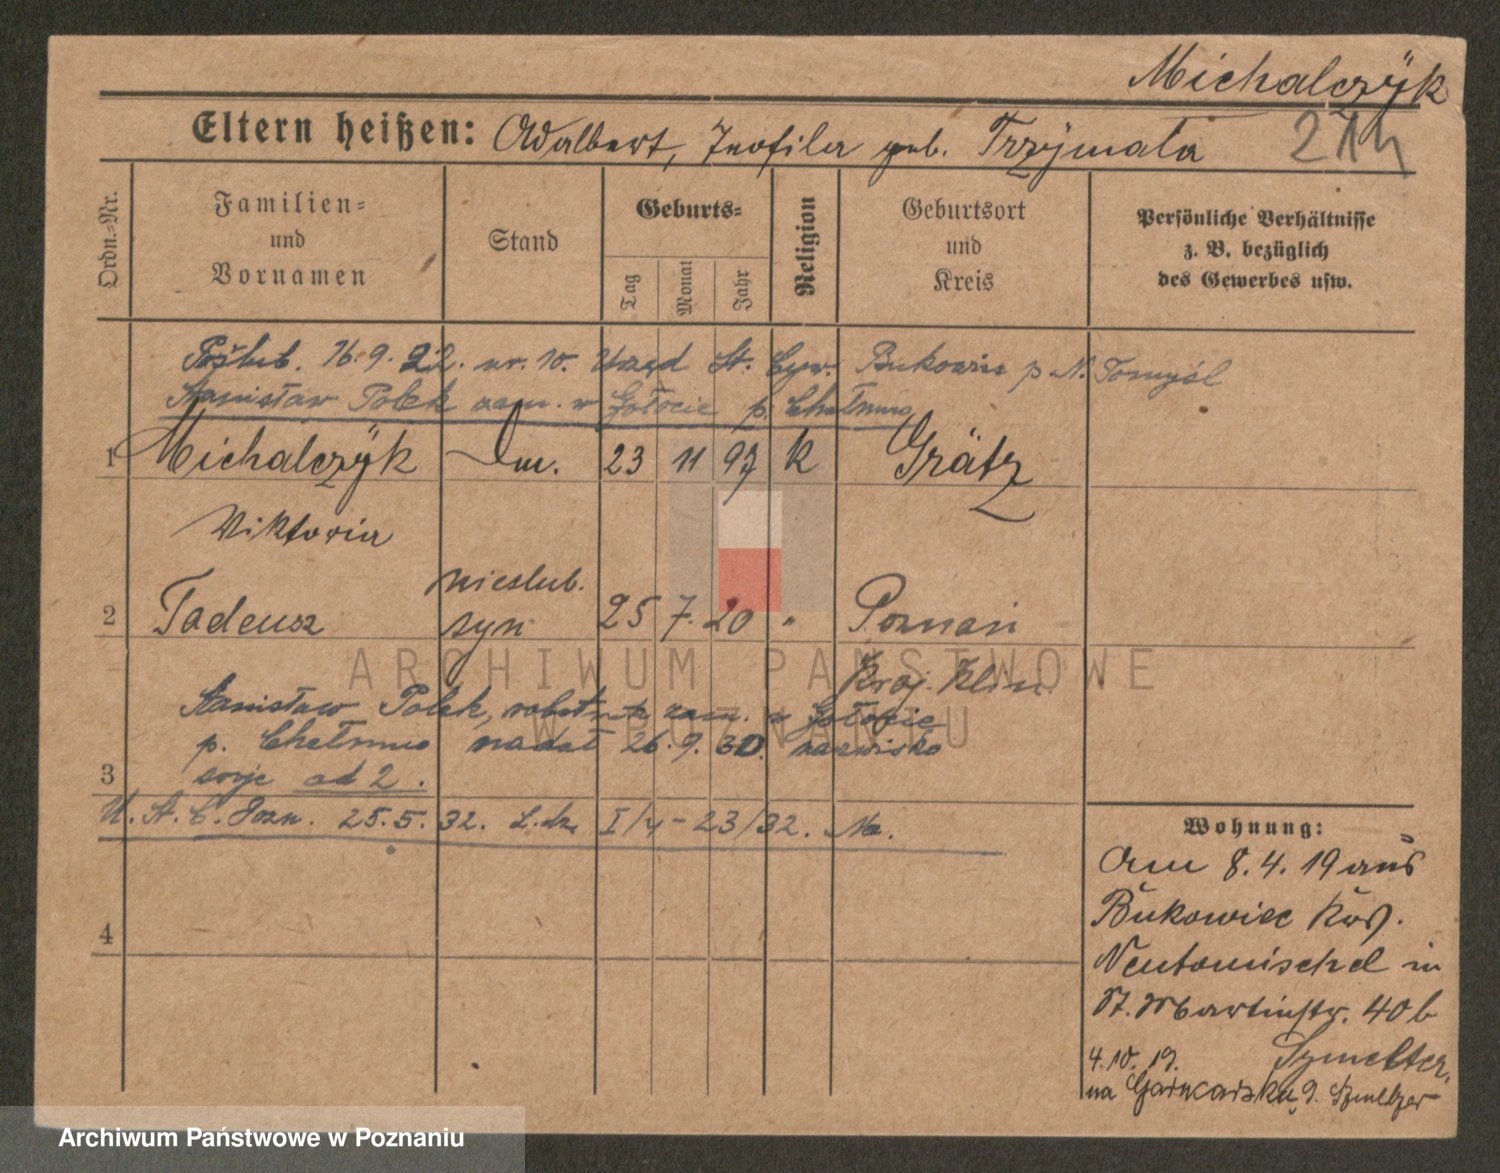 Michalczÿk
Eltern heißen: Adalbert, Teofila geb. Trzÿmala
Ordn.-Nr.
Familien-
und
Vornamen
Stand
Geburts-
Tag
Monat
Jahr
Religion
Geburtsort
und
Kreis
Persönliche Verhältnisse
z. B. bezüglich
des Gewerbes usw.
16.9.22. nr. 10. Urząd St. Cyw. Bukowiec p N. Tomyśl
Stanisław Polek zam. w p. Chełmno
1 Michalczÿk 23 11 97 k Grätz
Viktoria
2 Tadeusz nieslub. syn 25 7. 20 " Poznań
Kraj. Klin.
Stanisław Polek, robotnik zam. w
p. Chełmno nadał 26.9.30. nazwisko
3 swoje ad 2.
U. S. C. Pozn. 25.5.32. L.dz. I/4-23/32.
4
Wohnung:
Am 8.4.19 aus
Bukowiec Krs.
Neutomischel in
St. Martinstr. 40b
Szmelter,
4.10.19.
na Garncarską 9. Szmelzer
ARCHIWUM PAŃSTWOWE
W POZNANIU
Archiwum Państwowe w Poznaniu